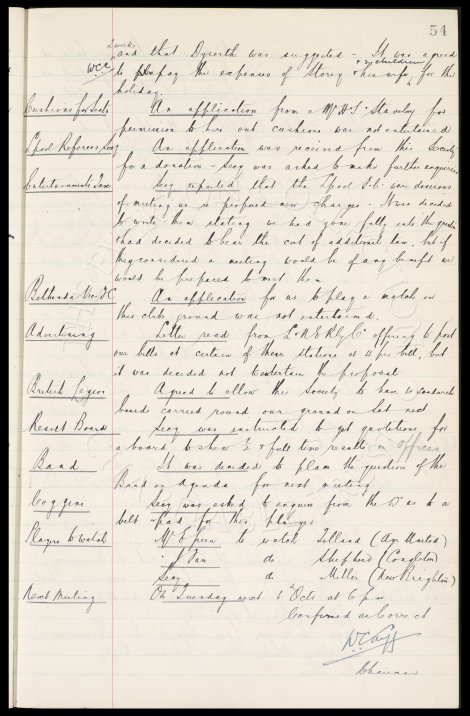 54
2 weeks
and that Dyserth was suggested - It was agreed
WCC
& 2 children
to pay the expenses of Storey & his wife, for the
holiday.
Cushions for Seats An application from a Mr H.S. Staveley for
permission to hire out cushions was not entertained
L'pool Referees Socy An application was received from this Society
for a donation - Secy was asked to make further enquiries
Entertainments Tax Secy reported that the L'pool F.C. were desirous
of meeting us re proposed new charges. It was decided
to write them stating we had gone fully into the question
& had decided to bear the cost of additional tax, but if
they considered a meeting would be of any benefit we
would be prepared to meet them
Bethesda Vic F.C. An application for us to play a match on
this clubs ground was not entertained.
Advertising Letter read from L.M.S. Rly Co offering to post
our bills at certain of their stations at per bill, but
it was decided not to entertain the proposal
British Legion Agreed to allow this Society to have 10 sandwich
boards carried round our ground on Sat next
Result Board Secy was instructed to get quotations for
a board to show ½ & full time results on Offices
Band It was decided to place the question of the
Band on agenda for next meeting
Coggins Secy was asked to enquire from the Dr as to a
belt & pad for this player
Players to watch Mr Green to watch Tolland (Ayr United)
do Shepherd (Congleton)
Secy do Miller (New Brighton)
Next Meeting On Tuesday next 1st Octr at 6 pm
Confirmed as Correct
W.C. Cuff
Chairman